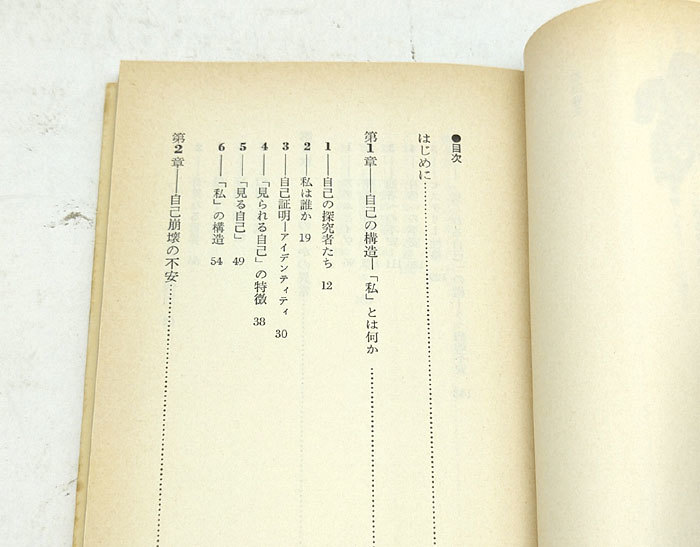 ●目次
はじめに
第1章──自己の構造─「私」とは何か
1──自己の探究者たち 12
2──私は誰か 19
3──自己証明─アイデンティティ 30
4──「見られる自己」の特徴 38
5──「見る自己」 49
6──「私」の構造 54
第2章──自己崩壊の不安